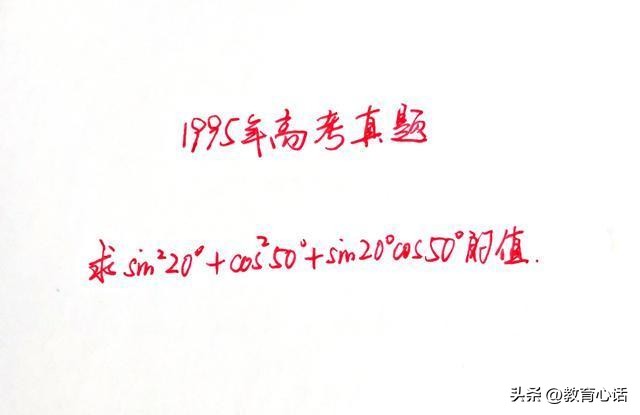 1995年高考真题
求sin²20°+cos²50°+sin20°cos50°的值.
头条 @教育心话